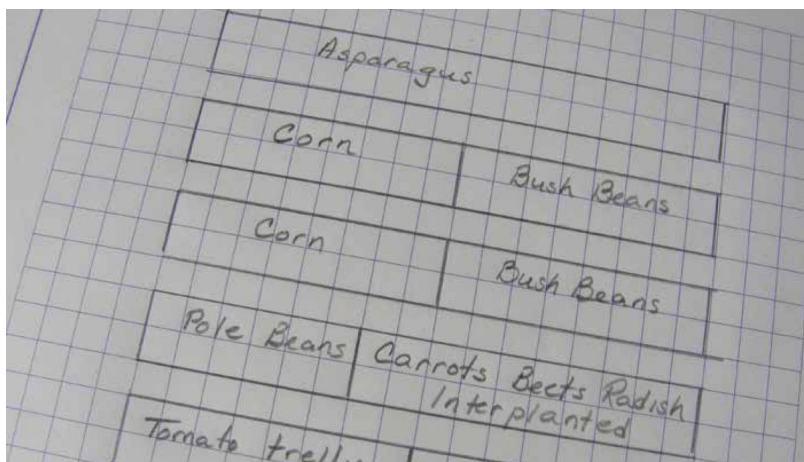 Asparagus
Corn
Bush Beans
Corn
Bush Beans
Pole Beans
Carrots Beets Radish
Interplanted
Tomato